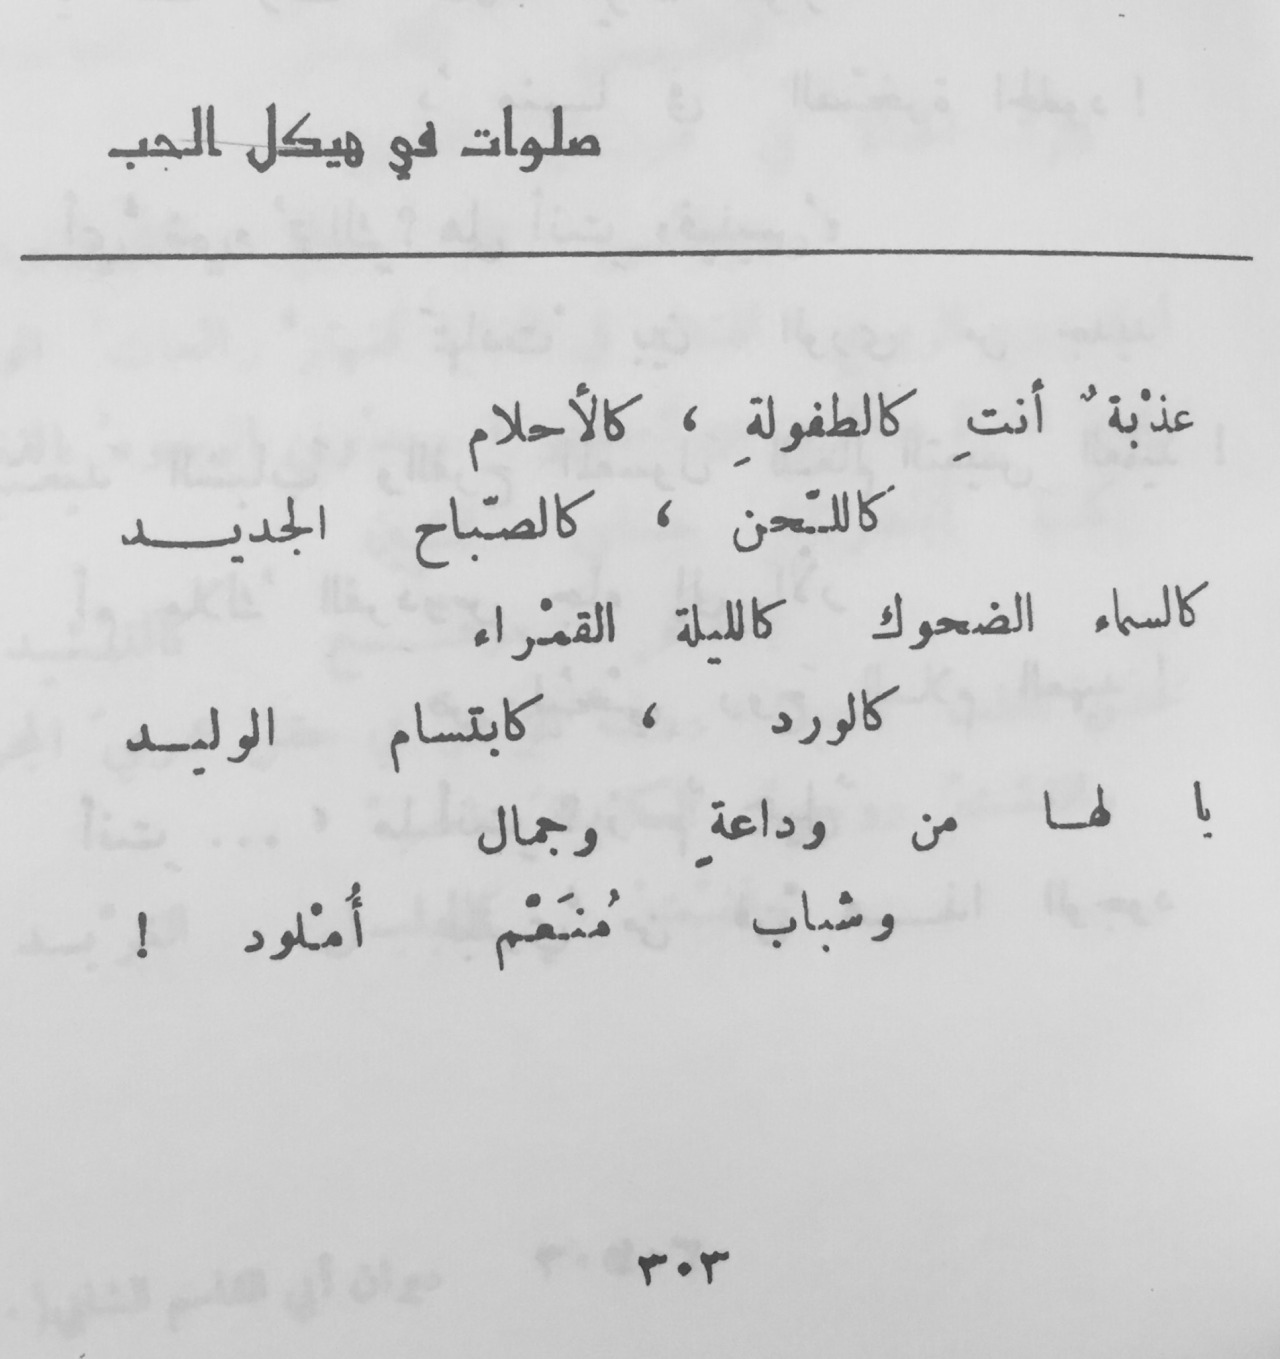 صلوات في هيكل الحب
عذْبةٌ أنتِ كالطفولةِ ، كالأحلام
كاللّحن ، كالصّباح الجديــد
كالسماء الضحوك كالليلة القمْراء
كالورد ، كابتسام الوليــد
يا لهـا من وداعةٍ وجمال
وشباب مُنَعْم أُمْلود !
٣٠٣